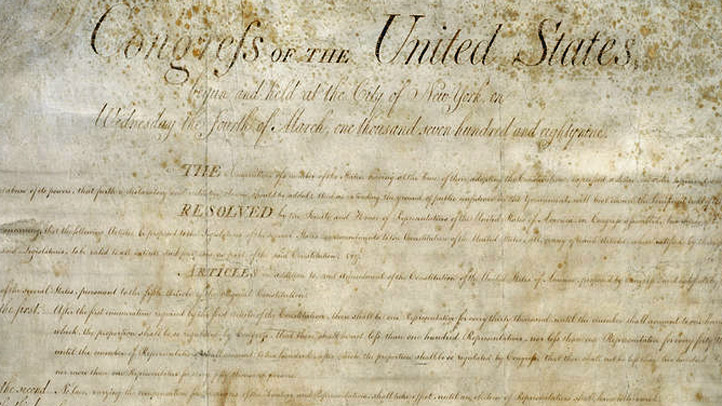 Congress OF THE United States,
begun and held at the City of New York, on
Wednesday the fourth of March, one thousand seven hundred and eighty nine.
THE Conventions of a number of the States having at the time of their adopting the Constitution, expressed a desire, in order to prevent
abuse of its powers, that further declaratory and restrictive clauses should be added: And as extending the ground of public confidence in the Government, will best ensure the
RESOLVED by the Senate and House of Representatives of the United States of America in Congress assembled, two thirds
concurring, that the following Articles be proposed to the Legislatures of the several States, as amendments to the Constitution of the United States, all, or any of which Articles, when ratified by
said Legislatures, to be valid to all intents and purposes, as part of the said Constitution; viz.
ARTICLES in addition to, and amendment of the Constitution of the United States of America, proposed by Congress, and ratified by
of the several States, pursuant to the fifth Article of the Original Constitution.
the first. After the first enumeration required by the first Article of the Constitution, there shall be one Representative for every thirty thousand, until the number shall amount to one
which, the proportion shall be so regulated by Congress, that there shall be not less than one hundred Representatives, nor less than one Representative for every forty
until the number of Representatives shall amount to two hundred, after which the proportion shall be so regulated by Congress, that there shall not be less than two hundred
nor more than one Representative for every fifty thousand persons.
the second. No law, varying the compensation for the services of the Senators and Representatives, shall take effect, until an election of Representatives shall have intervened.